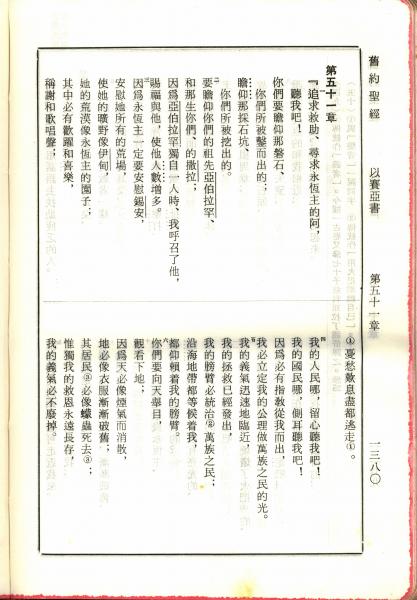 舊約聖經 以賽亞書 第五十一章 一三八〇
第五十一章
『追求救助、尋求永恆主的阿，
聽我吧！
你們要瞻仰那磐石、
你們所被鑿出的；
瞻仰那採石坑、
你們所被挖出的。
二要瞻仰你們的祖先亞伯拉罕、
和那生你們、的撒拉；
因為亞伯拉罕獨自一人時、我呼召了他，
賜福與他，使他人數增多。
三因為永恆主一定要安慰錫安，
安慰她所有的荒場，
使她的曠野像伊甸，
她的荒漠像永恆主的園子；
其中必有歡躍和喜樂，
稱謝和歌唱聲；
①憂愁歎息盡都逃走①。
四我的人民哪，留心聽我吧！
我的國民哪，側耳聽我吧！
因為必有指教從我而出，
我必立定我的公理做萬族之民的光。
五我的義氣迅速地臨近，
我的拯救已經發出，
我的膀臂必統治②萬族之民；
沿海地帶都等候着我，
都仰賴着我的膀臂。
六你們要向天舉目，
觀看下地；
因為天必像煙氣而消散，
地必像衣服漸漸破舊；
其居民③必像蠓蟲死去③；
惟獨我的救恩永遠長存，
我的義氣必不廢掉。